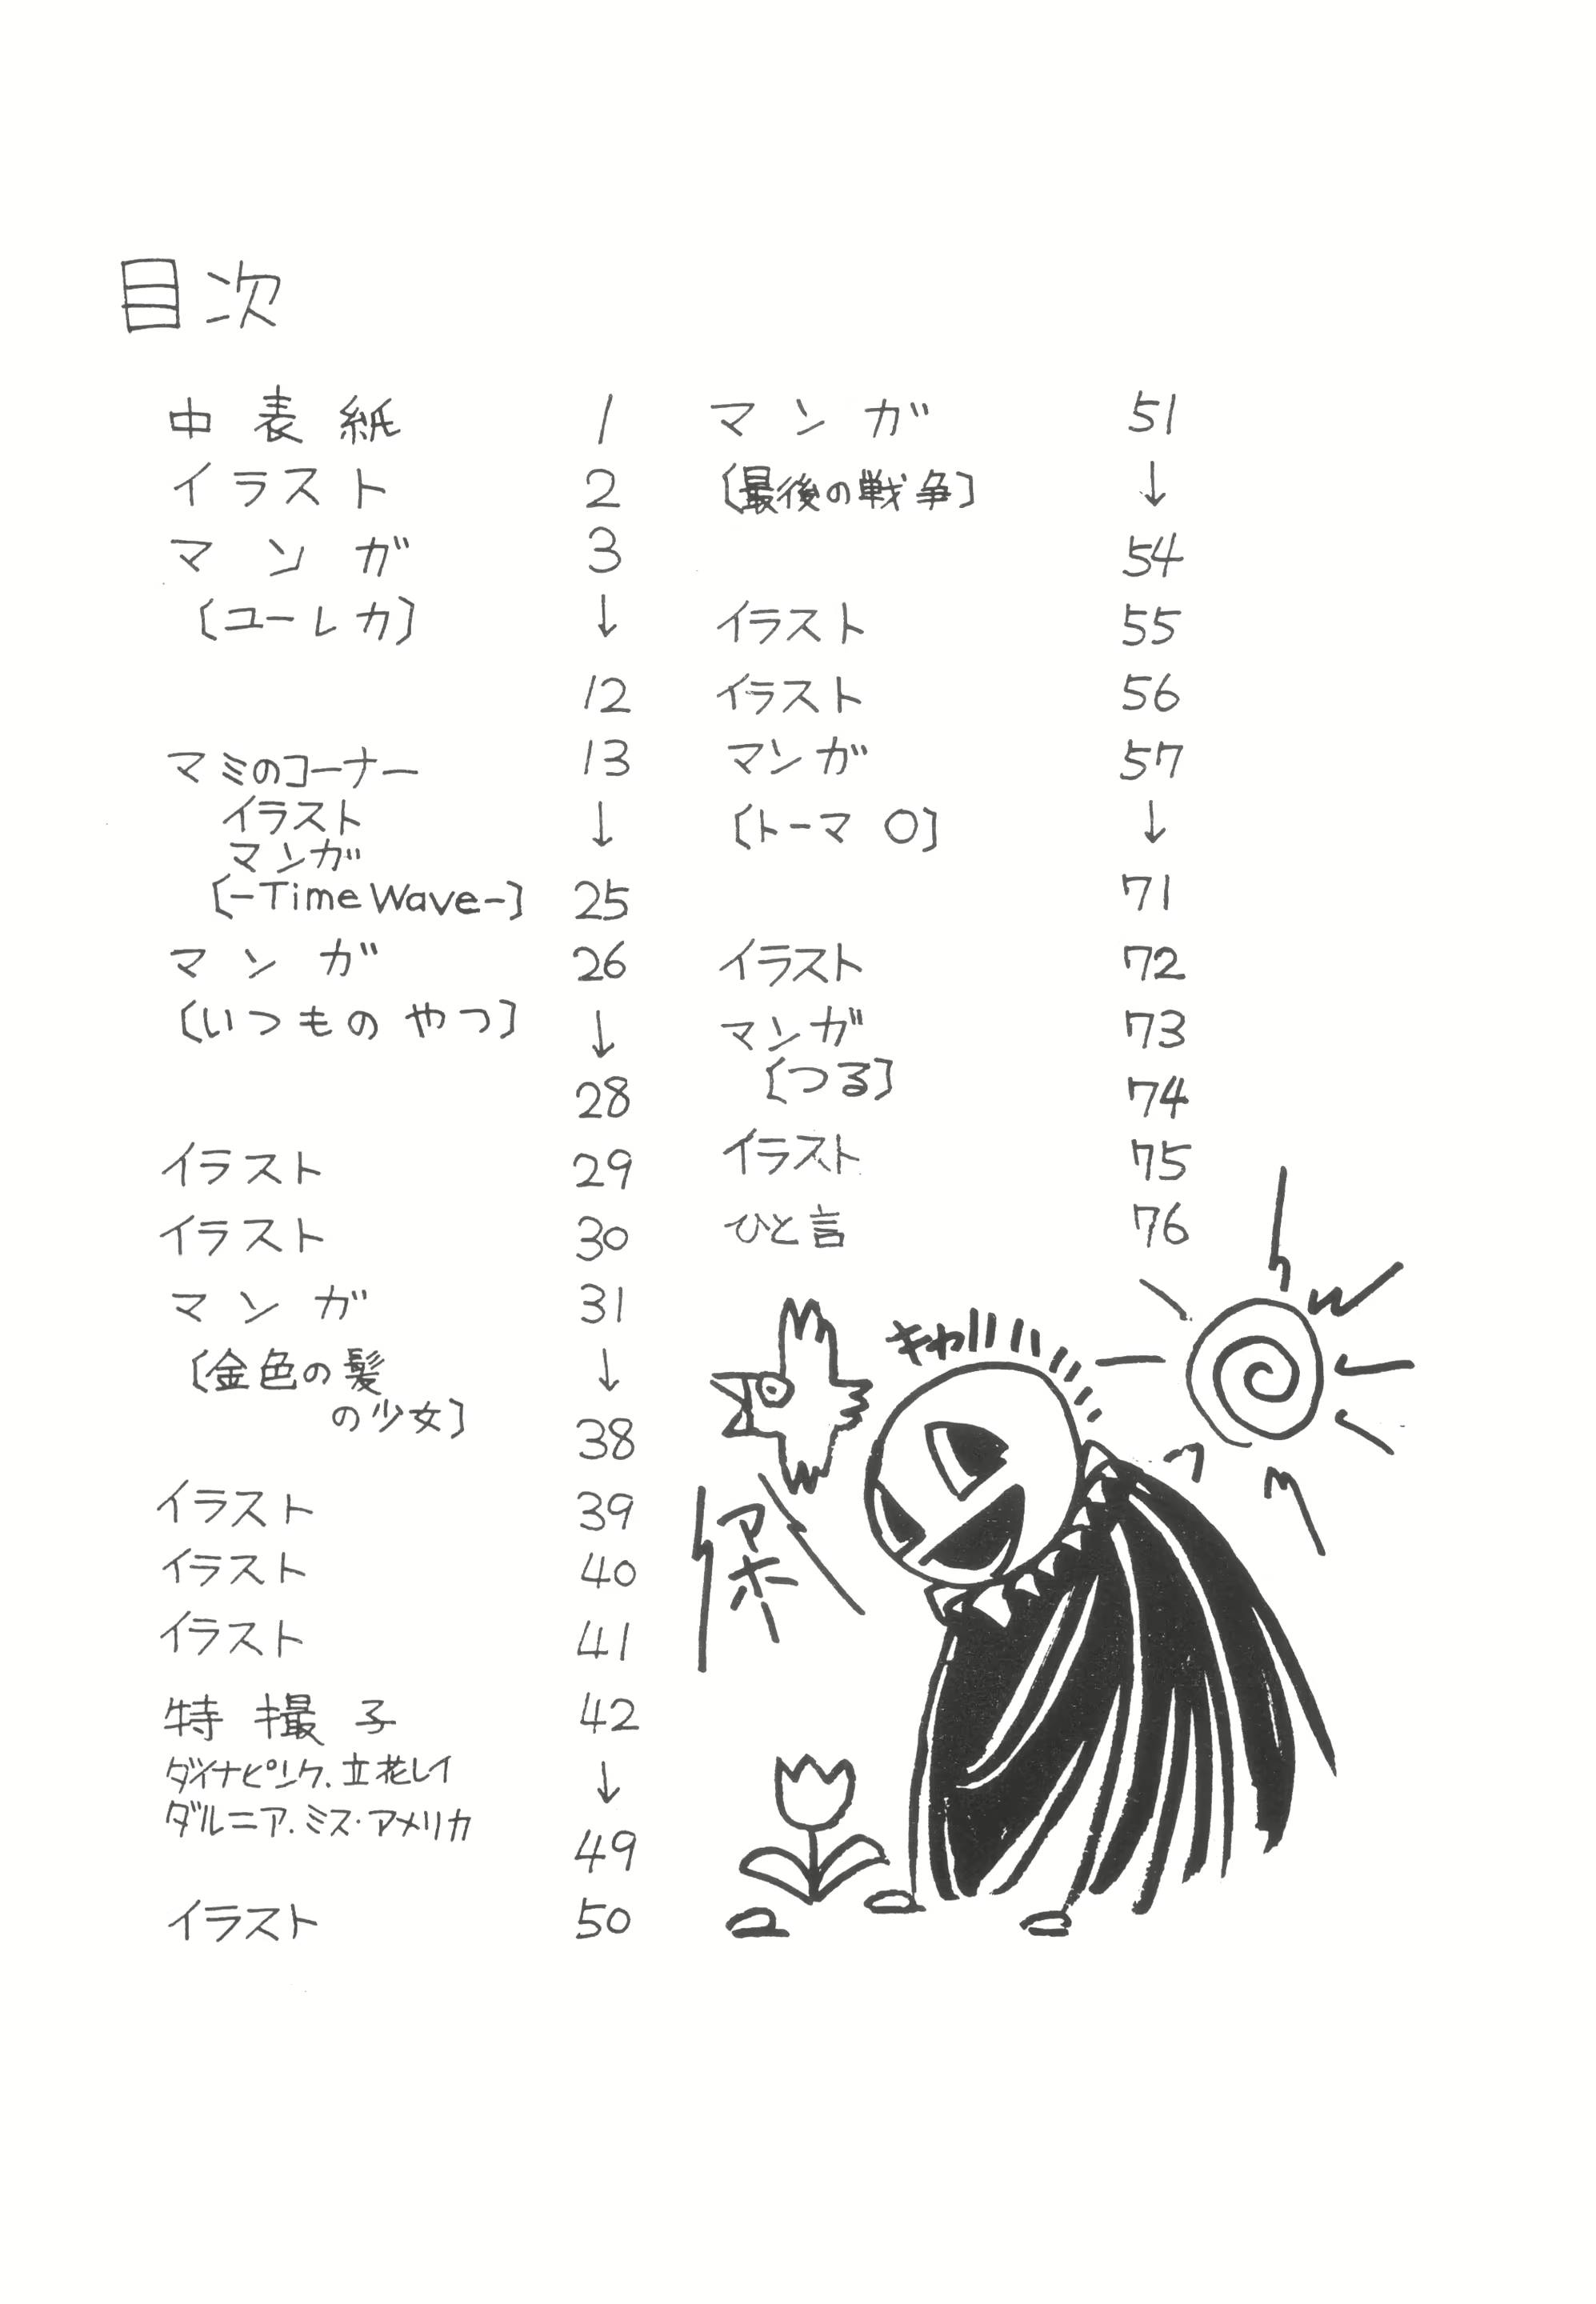 目次
中表紙 1
イラスト 2
マンガ 3
〔ユーレカ〕 ↓
12
マミのコーナー 13
イラスト ↓
マンガ
〔-Time Wave-〕 25
マンガ 26
〔いつものやつ〕 ↓
28
イラスト 29
イラスト 30
マンガ 31
〔金色の髪 ↓
の少女〕
38
イラスト 39
イラスト 40
イラスト 41
特撮子 42
ダイナピンク.立花レイ ↓
ダルニア.ミス・アメリカ
49
イラスト 50
マンガ 51
〔最後の戦争〕 ↓
54
イラスト 55
イラスト 56
マンガ 57
〔トーマ O〕 ↓
71
イラスト 72
マンガ 73
〔つる〕
74
イラスト 75
ひと言 76
キャ
アホ